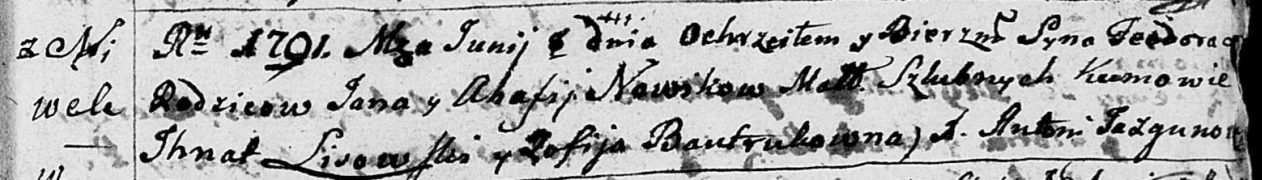 z Ni
wek
Rꝭ 1791. Mza Junij 6 dnia Ochrzciłem y Bierzm Syna Teodora
Rodzicow Jana y Ahafij Nowikow Małż. Szlubnych Kumowie
Ihnat Lisowski y Zofija Bautrukowna) X. Antoni